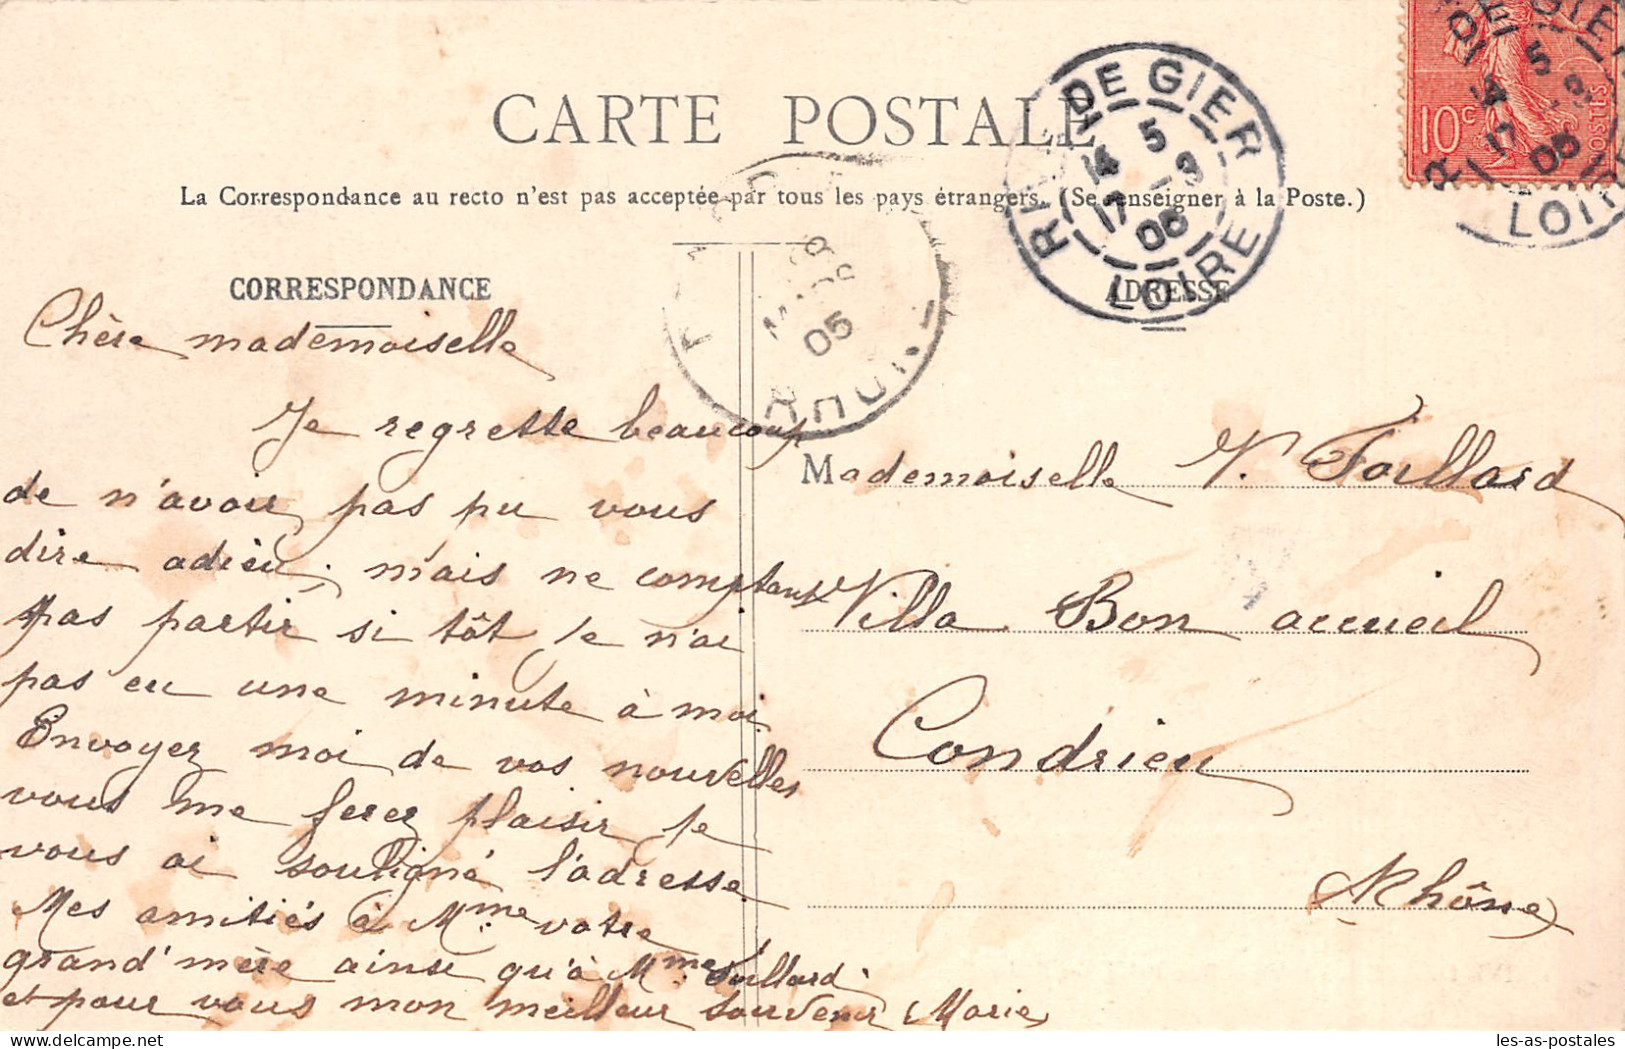 CARTE POSTALE
La Correspondance au recto n'est pas acceptée par tous les pays étrangers. (Se renseigner à la Poste.)
CORRESPONDANCE
ADRESSE
DE GIER
14 5
17 -3
05
LOIRE
05
RHONE
10c
DE GIER
LOIRE
Chère mademoiselle
Je regrette beaucoup
de n'avoir pas pu vous
dire adieu, mais ne comptant
pas partir si tôt je n'ai
pas eu une minute à moi
Envoyez moi de vos nouvelles
vous me ferez plaisir je
vous ai souligné l'adresse
Mes amitiés à Mme votre
grand'mère ainsi qu'à Mme Foillard
et pour vous mon meilleur souvenir Marie
Mademoiselle V. Foillard
Villa Bon accueil
Condrieu
Rhône
les-as-postales